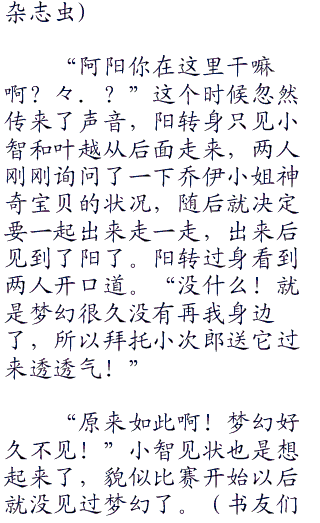 杂志虫）
“阿阳你在这里干嘛
啊？々．？”这个时候忽然
传来了声音，阳转身只见小
智和叶越从后面走来，两人
刚刚询问了一下乔伊小姐神
奇宝贝的状况，随后就决定
要一起出来走一走，出来后
见到了阳了。阳转过身看到
两人开口道。“没什么！就
是梦幻很久没有再我身边
了，所以拜托小次郎送它过
来透透气！”
“原来如此啊！梦幻好
久不见！”小智见状也是想
起来了，貌似比赛开始以后
就没见过梦幻了。（书友们